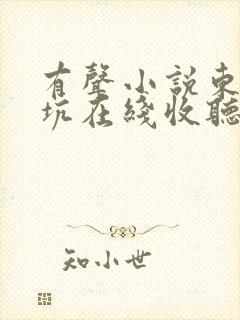 有聲小説東
坑在綫收聽
知小世